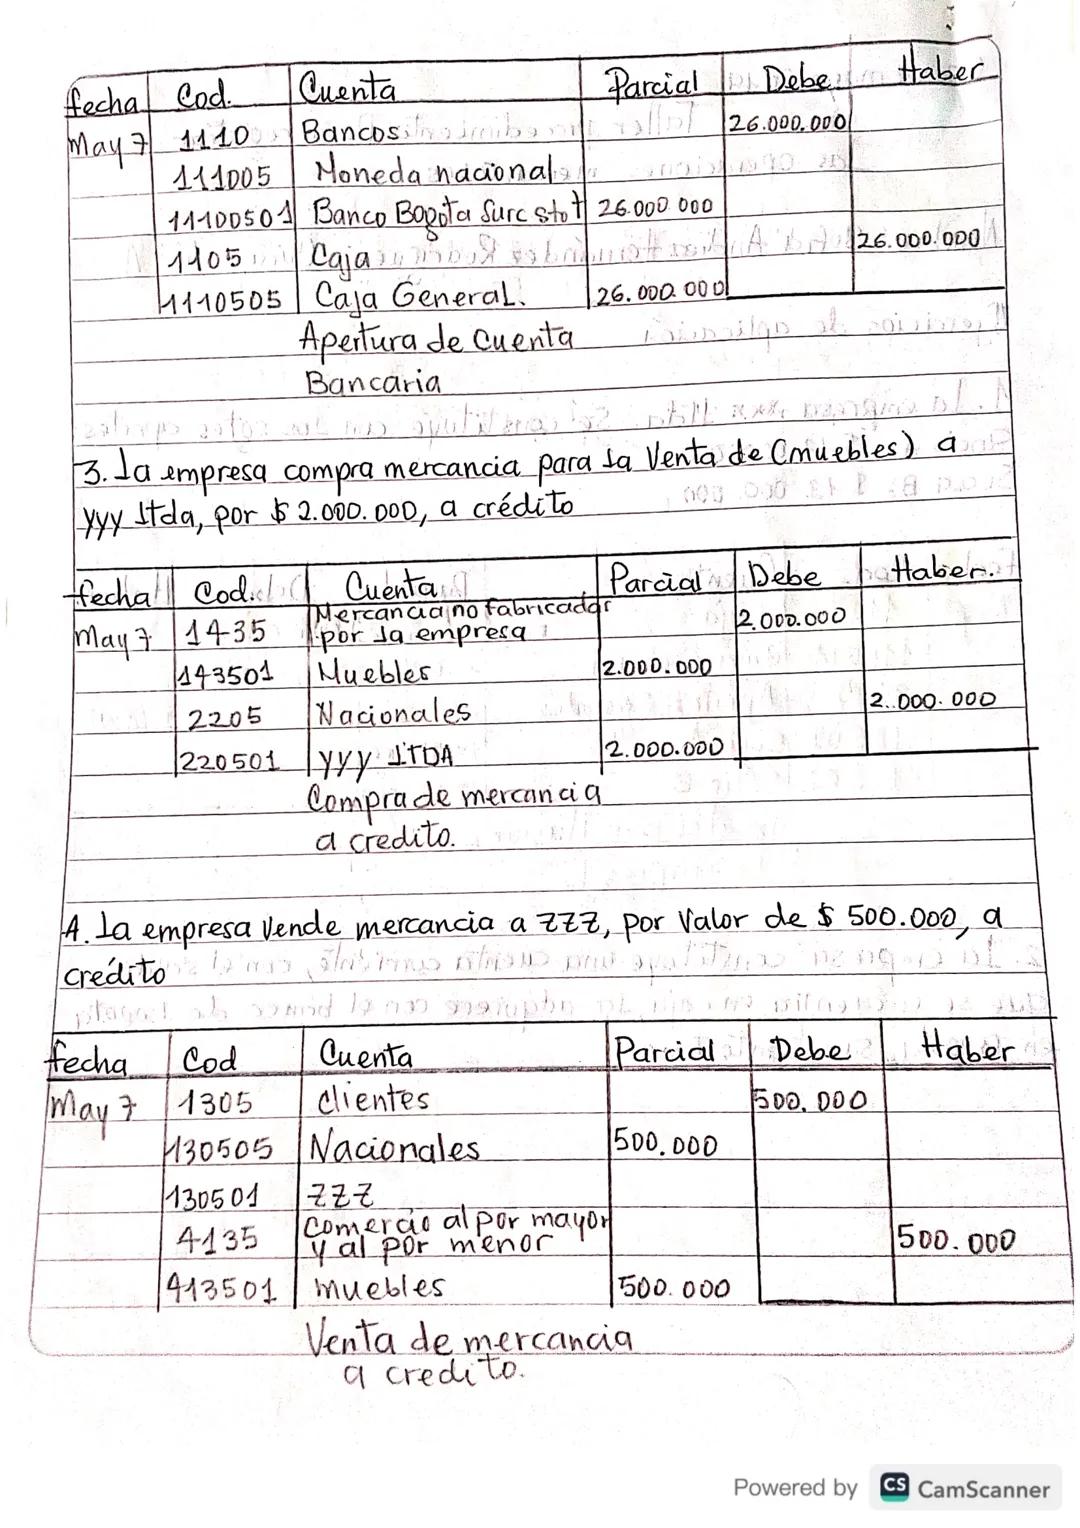 fecha Cod. Cuenta Parcial Debe Haber
May 7 1110 Bancos 26.000.000
111005 Moneda nacional
11100501 Banco Bogota Surc stot 26.000.000
1105 Caja 26.000.000
1110505 Caja General. 26.000.000
Apertura de Cuenta
Bancaria
3. La empresa compra mercancia para la Venta de (muebles) a
yyy ltda, por $ 2.000.000, a crédito
fecha Cod. Cuenta Parcial Debe Haber.
May 7 1435 Mercancia no fabricadar por la empresa 2.000.000
143501 Muebles 2.000.000
2205 Nacionales 2.000.000
220501 yyy LTDA 2.000.000
Compra de mercancia
a credito.
4. La empresa Vende mercancia a ZZZ, por Valor de $ 500.000, a
crédito
fecha Cod Cuenta Parcial Debe Haber
May 7 1305 clientes 500.000
130505 Nacionales 500.000
130501 ZZZ
4135 Comercio al por mayor y al por menor 500.000
413501 muebles 500.000
Venta de mercancia
a credito.
Powered by CS CamScanner